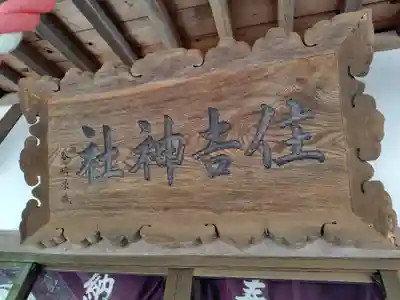 住吉神社
奉納